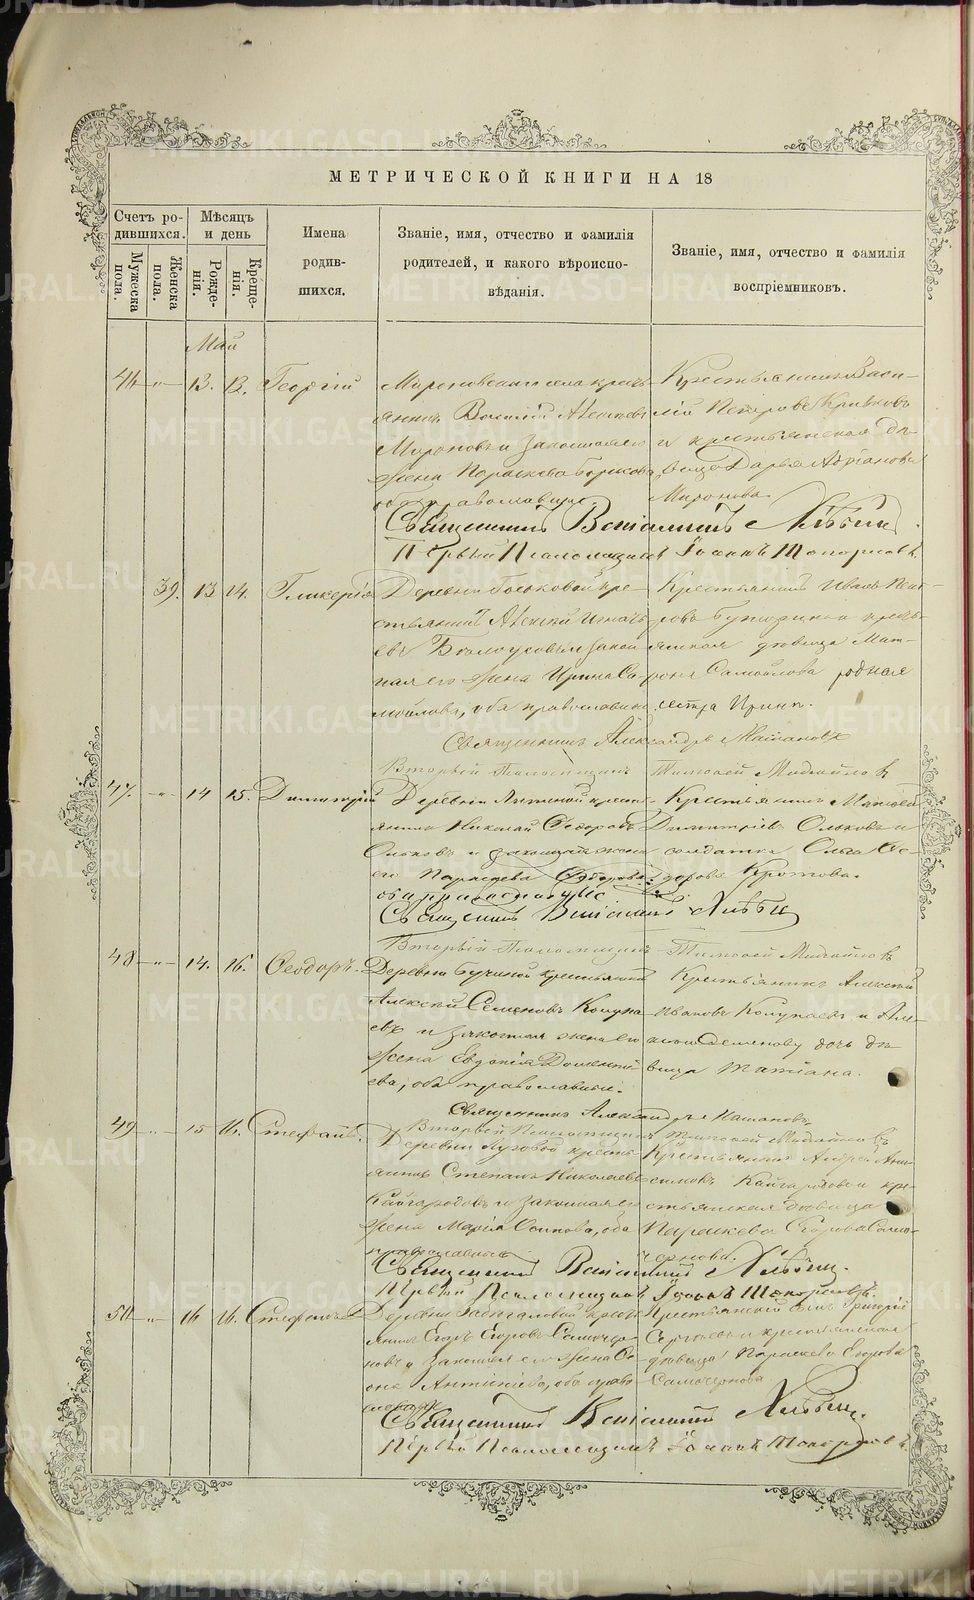 МЕТРИЧЕСКОЙ КНИГИ НА 18
Счетъ родившихся.
Мужеска пола.
Женска пола.
Мѣсяцъ и день
Рожденія.
Крещенія.
Имена родившихся.
Званіе, имя, отчество и фамилія родителей, и какого вѣроисповѣданія.
Званіе, имя, отчество и фамилія воспріемниковъ.
Май
46 „ 13. 13. Георгій
Мироновскаго села кресть-
янинъ Василій Алексѣевъ
Мироновъ и законная его
жена Параскева Борисова,
оба православные.
Крестьянинъ Васи-
лій Петровъ
и крестьянская дѣ-
вица Дарья
Миронова.
Священникъ Веніаминъ Хлѣбин
Первый Псаломщикъ Іоаннъ Топорковъ.
39. 13 14. Гликерія
Деревни кре-
стьянинъ Алексѣй Игнать-
евъ Бѣлоусовъ и закон-
ная его жена Ирина Са-
мойлова, оба православные
Крестьянинъ Иванъ Пет-
ровъ и кресть-
янская дѣвица Мат-
рона Самойлова родная
сестра Ирины.
Священникъ Александръ
Вторый Псаломщикъ Тимоѳей Михайловъ
47. „ 14 15. Димитрій
Деревни кресть-
янинъ Николай Ѳедоровъ
Ольковъ и законная жена
его Параскева Ѳедорова
оба православные
Крестьянинъ Матвей
Димитріевъ Ольковъ и
солдатка Ольга Ѳе-
дорова Кротова.
Священникъ Веніаминъ Хлѣбин
Вторый Псаломщикъ Тимоѳей Михайловъ
48 „ 14. 16. Ѳеодоръ.
Деревни Бучиной крестьянинъ
Алексѣй Семеновъ Колупа-
евъ и законная жена его
жена Евдокія Дометі-
ева, оба православные.
Крестьянинъ Алексѣй
Ивановъ Колупаевъ и Але-
ксѣя Семенову дочь дѣ-
вица Татіана.
Священникъ Александръ
Вторый Псаломщикъ Тимоѳей Михайловъ
49 „ 15 16. Стефанъ.
Деревни Луговой кресть-
янинъ Степанъ Николаевъ
Кайгородовъ и законная его
жена Марія Осипова, оба
православные
Крестьянинъ Андрей Ани-
симовъ Кайгородовъ и кре-
стьянская дѣвица
Параскева Егорова Само-
чернова.
Священникъ Веніаминъ Хлѣбин.
Первый Псаломщикъ Іоаннъ Топорковъ.
50 „ 16 16. Стефанъ
Деревни кресть-
янинъ Егоръ Егоровъ Самочер-
новъ и законная его жена
оба право-
славные
Крестьянскій сынъ Григорій
Сергѣевъ и крестьянская
дѣвица Параскева Егорова
Самочернова
Священникъ Веніаминъ Хлѣбин.
Первый Псаломщикъ Іоаннъ Топорковъ.
METRIKI.GASO-URAL.RU